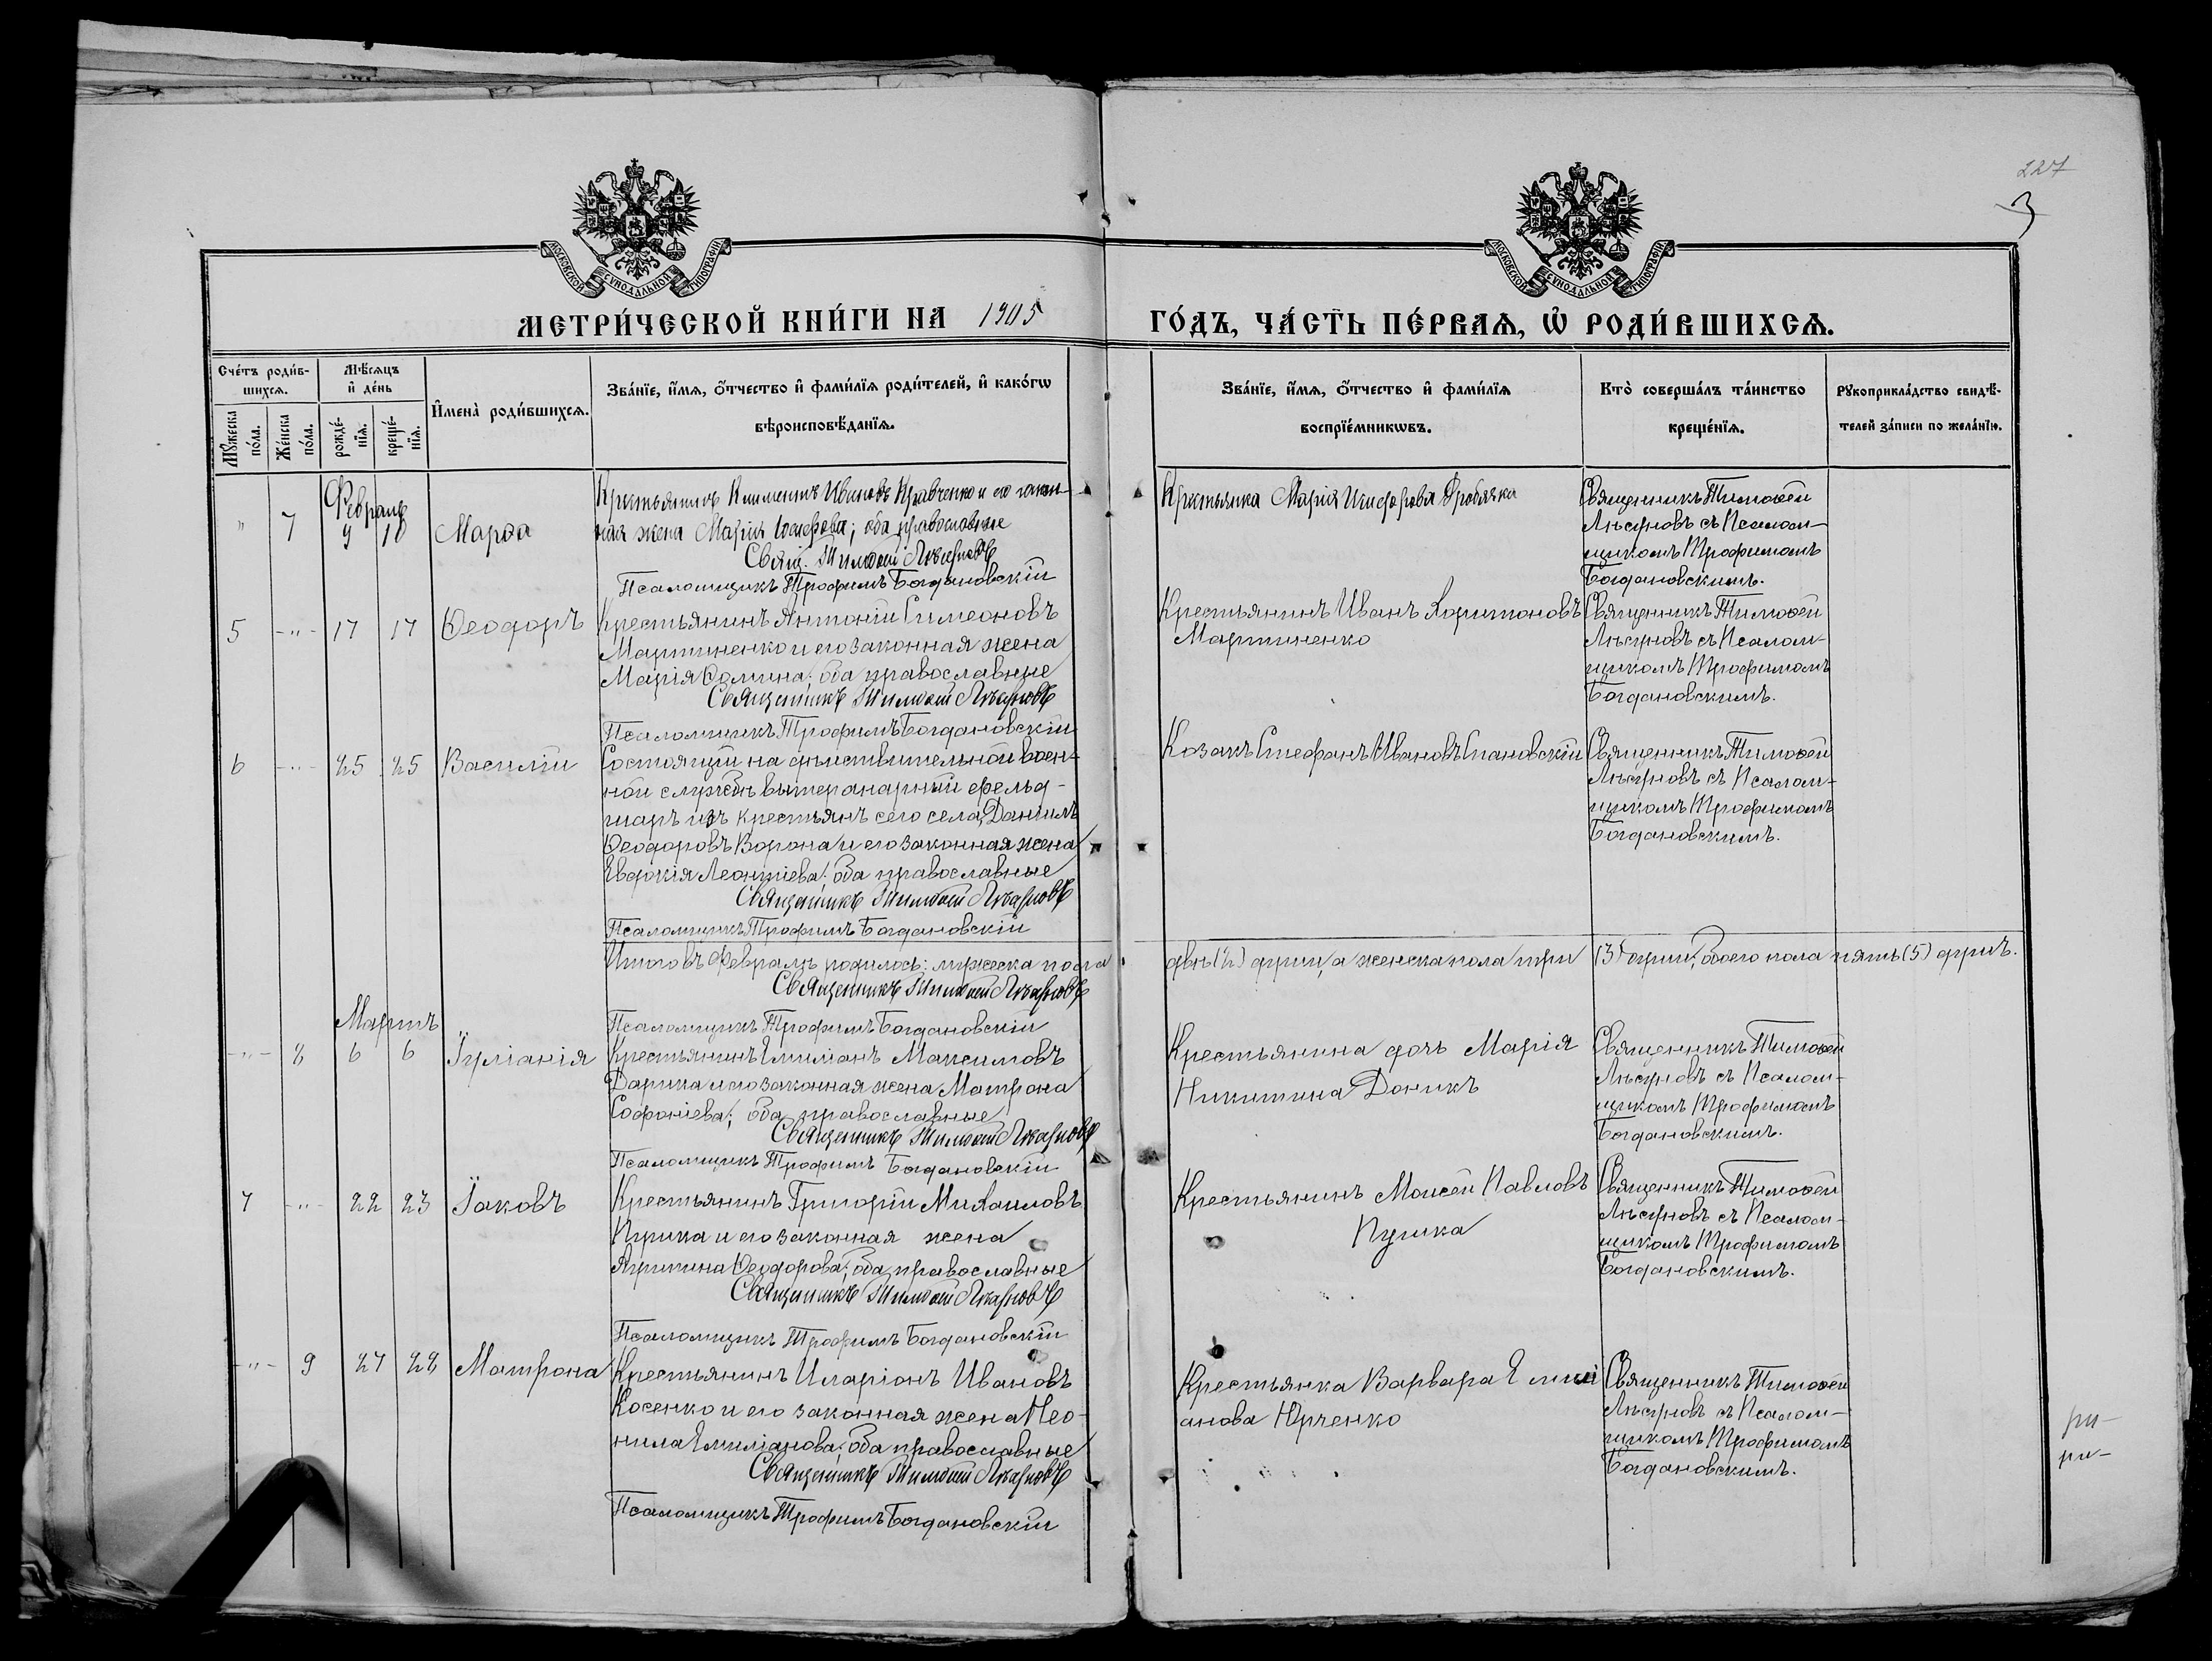 227
3
МОСКОВСКОЙ СѴНОДАЛЬНОЙ ТИПОГРАФІИ
МОСКОВСКОЙ СѴНОДАЛЬНОЙ ТИПОГРАФІИ
МЕТРИ́ЧЕСКОЙ КНИ́ГИ НА 1905 ГО́ДЪ, ЧА́СТЬ ПЕ́РВАѦ, Ѡ РОДИ́ВШИХСѦ.
Сче́тъ роди́в-
шихсѧ.
Мꙋ́жеска
по́ла.
Же́нска
по́ла.
Мѣ́сѧцъ
и҆ де́нь
рожде́-
нїѧ.
креще́-
нїѧ.
И҆мена̀ роди́вшихсѧ.
Зва́нїе, и҆́мѧ, ѻ҆́тчество и҆ фами́лїѧ роди́телей, и҆ како́гѡ
вѣроисповѣ́данїѧ.
Зва́нїе, и҆́мѧ, ѻ҆́тчество и҆ фами́лїѧ
воспрїе́мникѡвъ.
Кто̀ соверша́лъ та́инство
креще́нїѧ.
Рꙋкоприкла́дство свидѣ́-
телей за́писи по жела́нїю.
Февраль
" 7 9 10 Марѳа
Крестьянинъ Климентъ Ивановъ Кравченко и его закон-
ная жена Марія Іосифова; оба православные
Свящ. Тимоѳей Лѣсуновъ
Псаломщикъ Трофимъ Богдановскій
Крестьянка Марія Никифорова Дробязка
Священникъ Тимоѳей
Лѣсуновъ съ Псалом-
щикомъ Трофимомъ
Богдановскимъ.
5 -"- 17 17 Ѳеодоръ
Крестьянинъ Антоній Симеоновъ
Мартиненко и его законная жена
Марія Ѳомина; оба православные
Священникъ Тимоѳей Лѣсуновъ
Псаломщикъ Трофимъ Богдановскій
Крестьянинъ Иванъ Харитоновъ
Мартиненко
Священникъ Тимоѳей
Лѣсуновъ съ Псалом-
щикомъ Трофимомъ
Богдановскимъ.
6 -"- 25 25 Василій
Состоящій на дѣйствительной воен-
ной службѣ ветеранарный фельд-
шаръ изъ крестьянъ сего села, Даніилъ
Ѳеодоровъ Ворона и его законная жена
Евдокія Леонтіева; оба православные
Священникъ Тимоѳей Лѣсуновъ
Псаломщикъ Трофимъ Богдановскій
Козакъ Стефанъ Ивановъ Становскій
Священникъ Тимоѳей
Лѣсуновъ съ Псалом-
щикомъ Трофимомъ
Богдановскимъ.
Итого въ Февралѣ родилось: мужеска пола двѣ (2) души, а женска пола три (3) души, обоего пола пять (5) душъ.
Священникъ Тимоѳей Лѣсуновъ
Псаломщикъ Трофимъ Богдановскій
Мартъ
-"- 8 6 6 Іуліанія
Крестьянинъ Емиліанъ Максимовъ
Дарика и его законная жена Матрона
Софоніева; оба православные
Священникъ Тимоѳей Лѣсуновъ
Псаломщикъ Трофимъ Богдановскій
Крестьянина дочь Марія
Никитина Доникъ
Священникъ Тимоѳей
Лѣсуновъ съ Псалом-
щикомъ Трофимомъ
Богдановскимъ.
7 -"- 22 23 Іаковъ
Крестьянинъ Григорій Михаиловъ
и его законная жена
Агрипина Ѳеодорова; оба православные
Священникъ Тимоѳей Лѣсуновъ
Псаломщикъ Трофимъ Богдановскій
Крестьянинъ Моисей Павловъ
Пушка
Священникъ Тимоѳей
Лѣсуновъ съ Псалом-
щикомъ Трофимомъ
Богдановскимъ.
-"- 9 27 28 Матрона
Крестьянинъ Иларіонъ Ивановъ
Косенко и его законная жена Нео-
нила Емиліанова; оба православные
Священникъ Тимоѳей Лѣсуновъ
Псаломщикъ Трофимъ Богдановскій
Крестьянка Варвара Емилі
анова Юрченко
Священникъ Тимоѳей
Лѣсуновъ съ Псалом-
щикомъ Трофимомъ
Богдановскимъ.